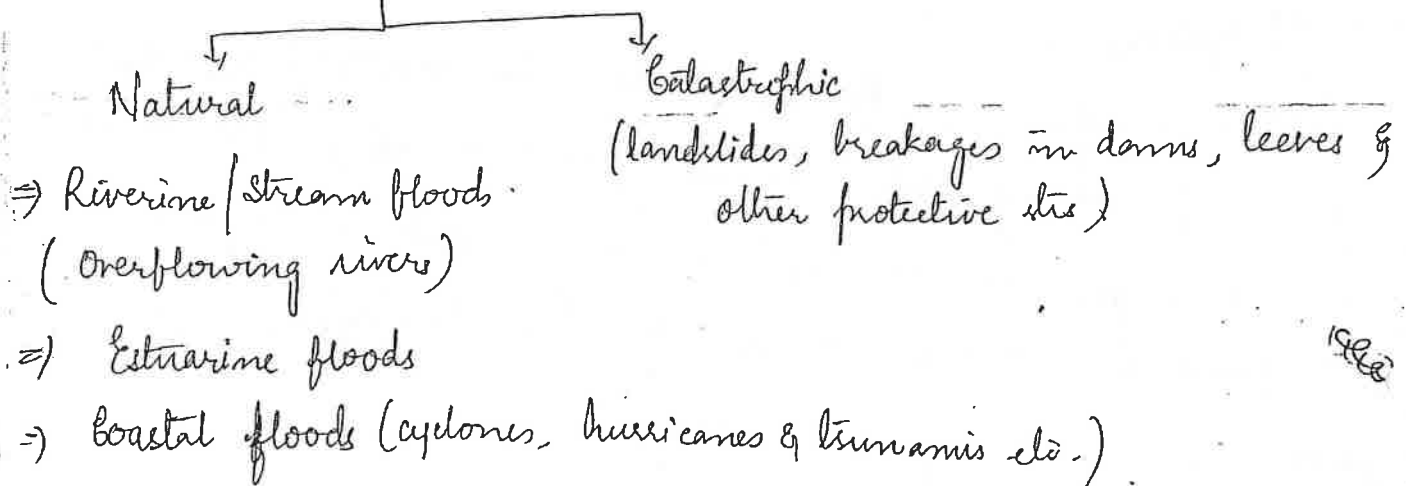 Natural
Catastrophic
(landslides, breakages in dams, leeves &
other protective strs)
⇒ Riverine/stream floods.
(Overflowing rivers)
⇒ Estuarine floods
⇒ Coastal floods (cyclones, hurricanes & tsunamis etc.)